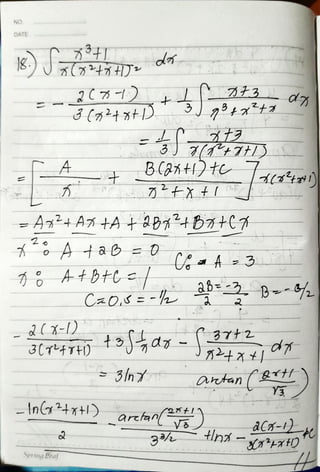 NO.
DATE
18.) ∫ x³+1 / x(x²+x+1)² dx
= - 2(x-1) / 3(x²+x+1) + 1/3 ∫ x+3 / x³+x²+x dx
= 1/3 ∫ x+3 / x(x²+x+1)
= [ A / x + B(2x+1)+C / x²+x+1 ] x(x²+x+1)
= Ax²+Ax+A+2Bx²+Bx+Cx
x²: A+2B=0
C: A=3
x: A+B+C=1
2B/2 = -3/2 B=-3/2
C=0,5=-1/2
- 2(x-1) / 3(x²+x+1) + 3∫ 1/x dx - ∫ 3x+2 / x²+x+1 dx
= 3lnx arctan( 2x+1 / √3 )
- ln(x²+x+1) / 2 - arctan( 2x+1 / √3 ) / 3^3/2 + lnx - 2(x-1) / 3(x²+x+1) +C
Spring Leaf